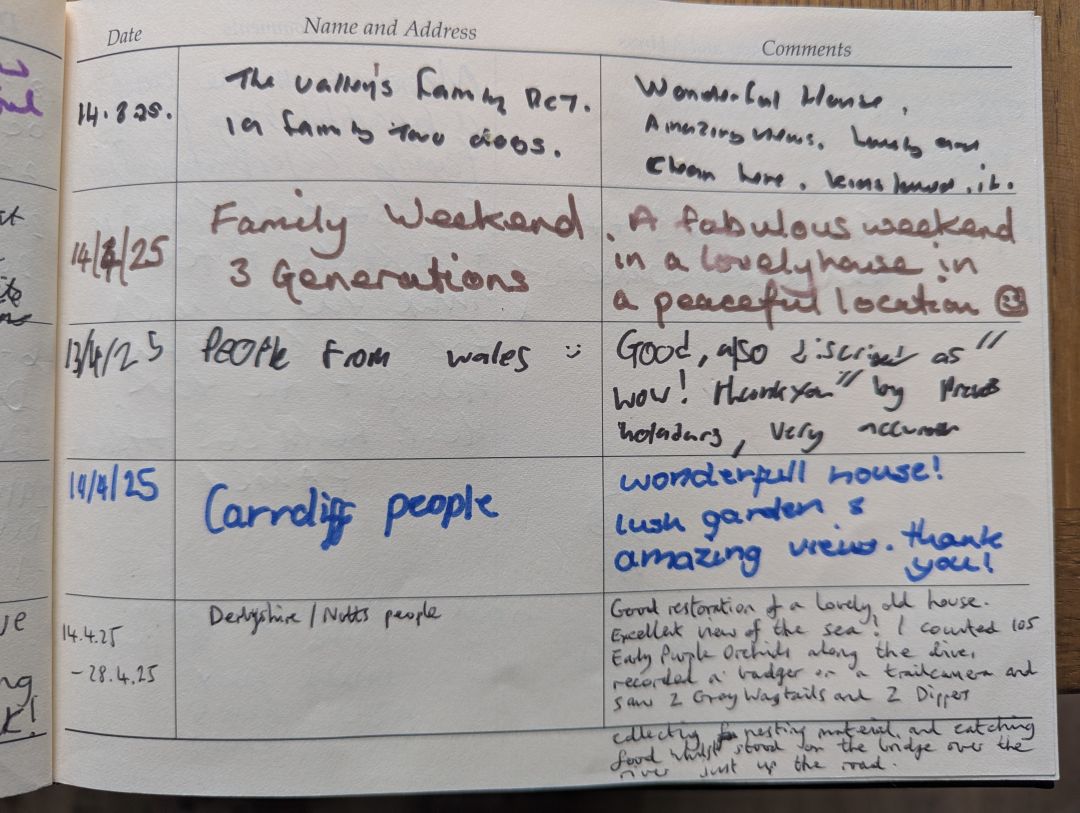 Date Name and Address Comments
14.8.25.
The valley's family RCT.
in family two dogs.
Wonderful House,
Amazing views. Lovely and
Clean here. kids loved it.
14/4/25
Family Weekend
3 Generations
A fabulous weekend
in a lovely house in
a peaceful location
13/4/25
PeoPle from wales :)
Good, also discribed as "
wow! thankyou" by
holadars, very
14/4/25
Carrdiff people
wonderfull house!
lush garden &
amazing views. thank
you!
14.4.25
-28.4.25
Derbyshire / Notts people
Good restoration of a lovely old house.
Excellent view of the sea! I counted 105
Early Purple Orchids along the drive,
recorded a badger on a trailcamera and
saw 2 Grey Wagtails and 2 Dippers
collecting nesting material and catching
food whilst stood on the bridge over the
river just up the road.